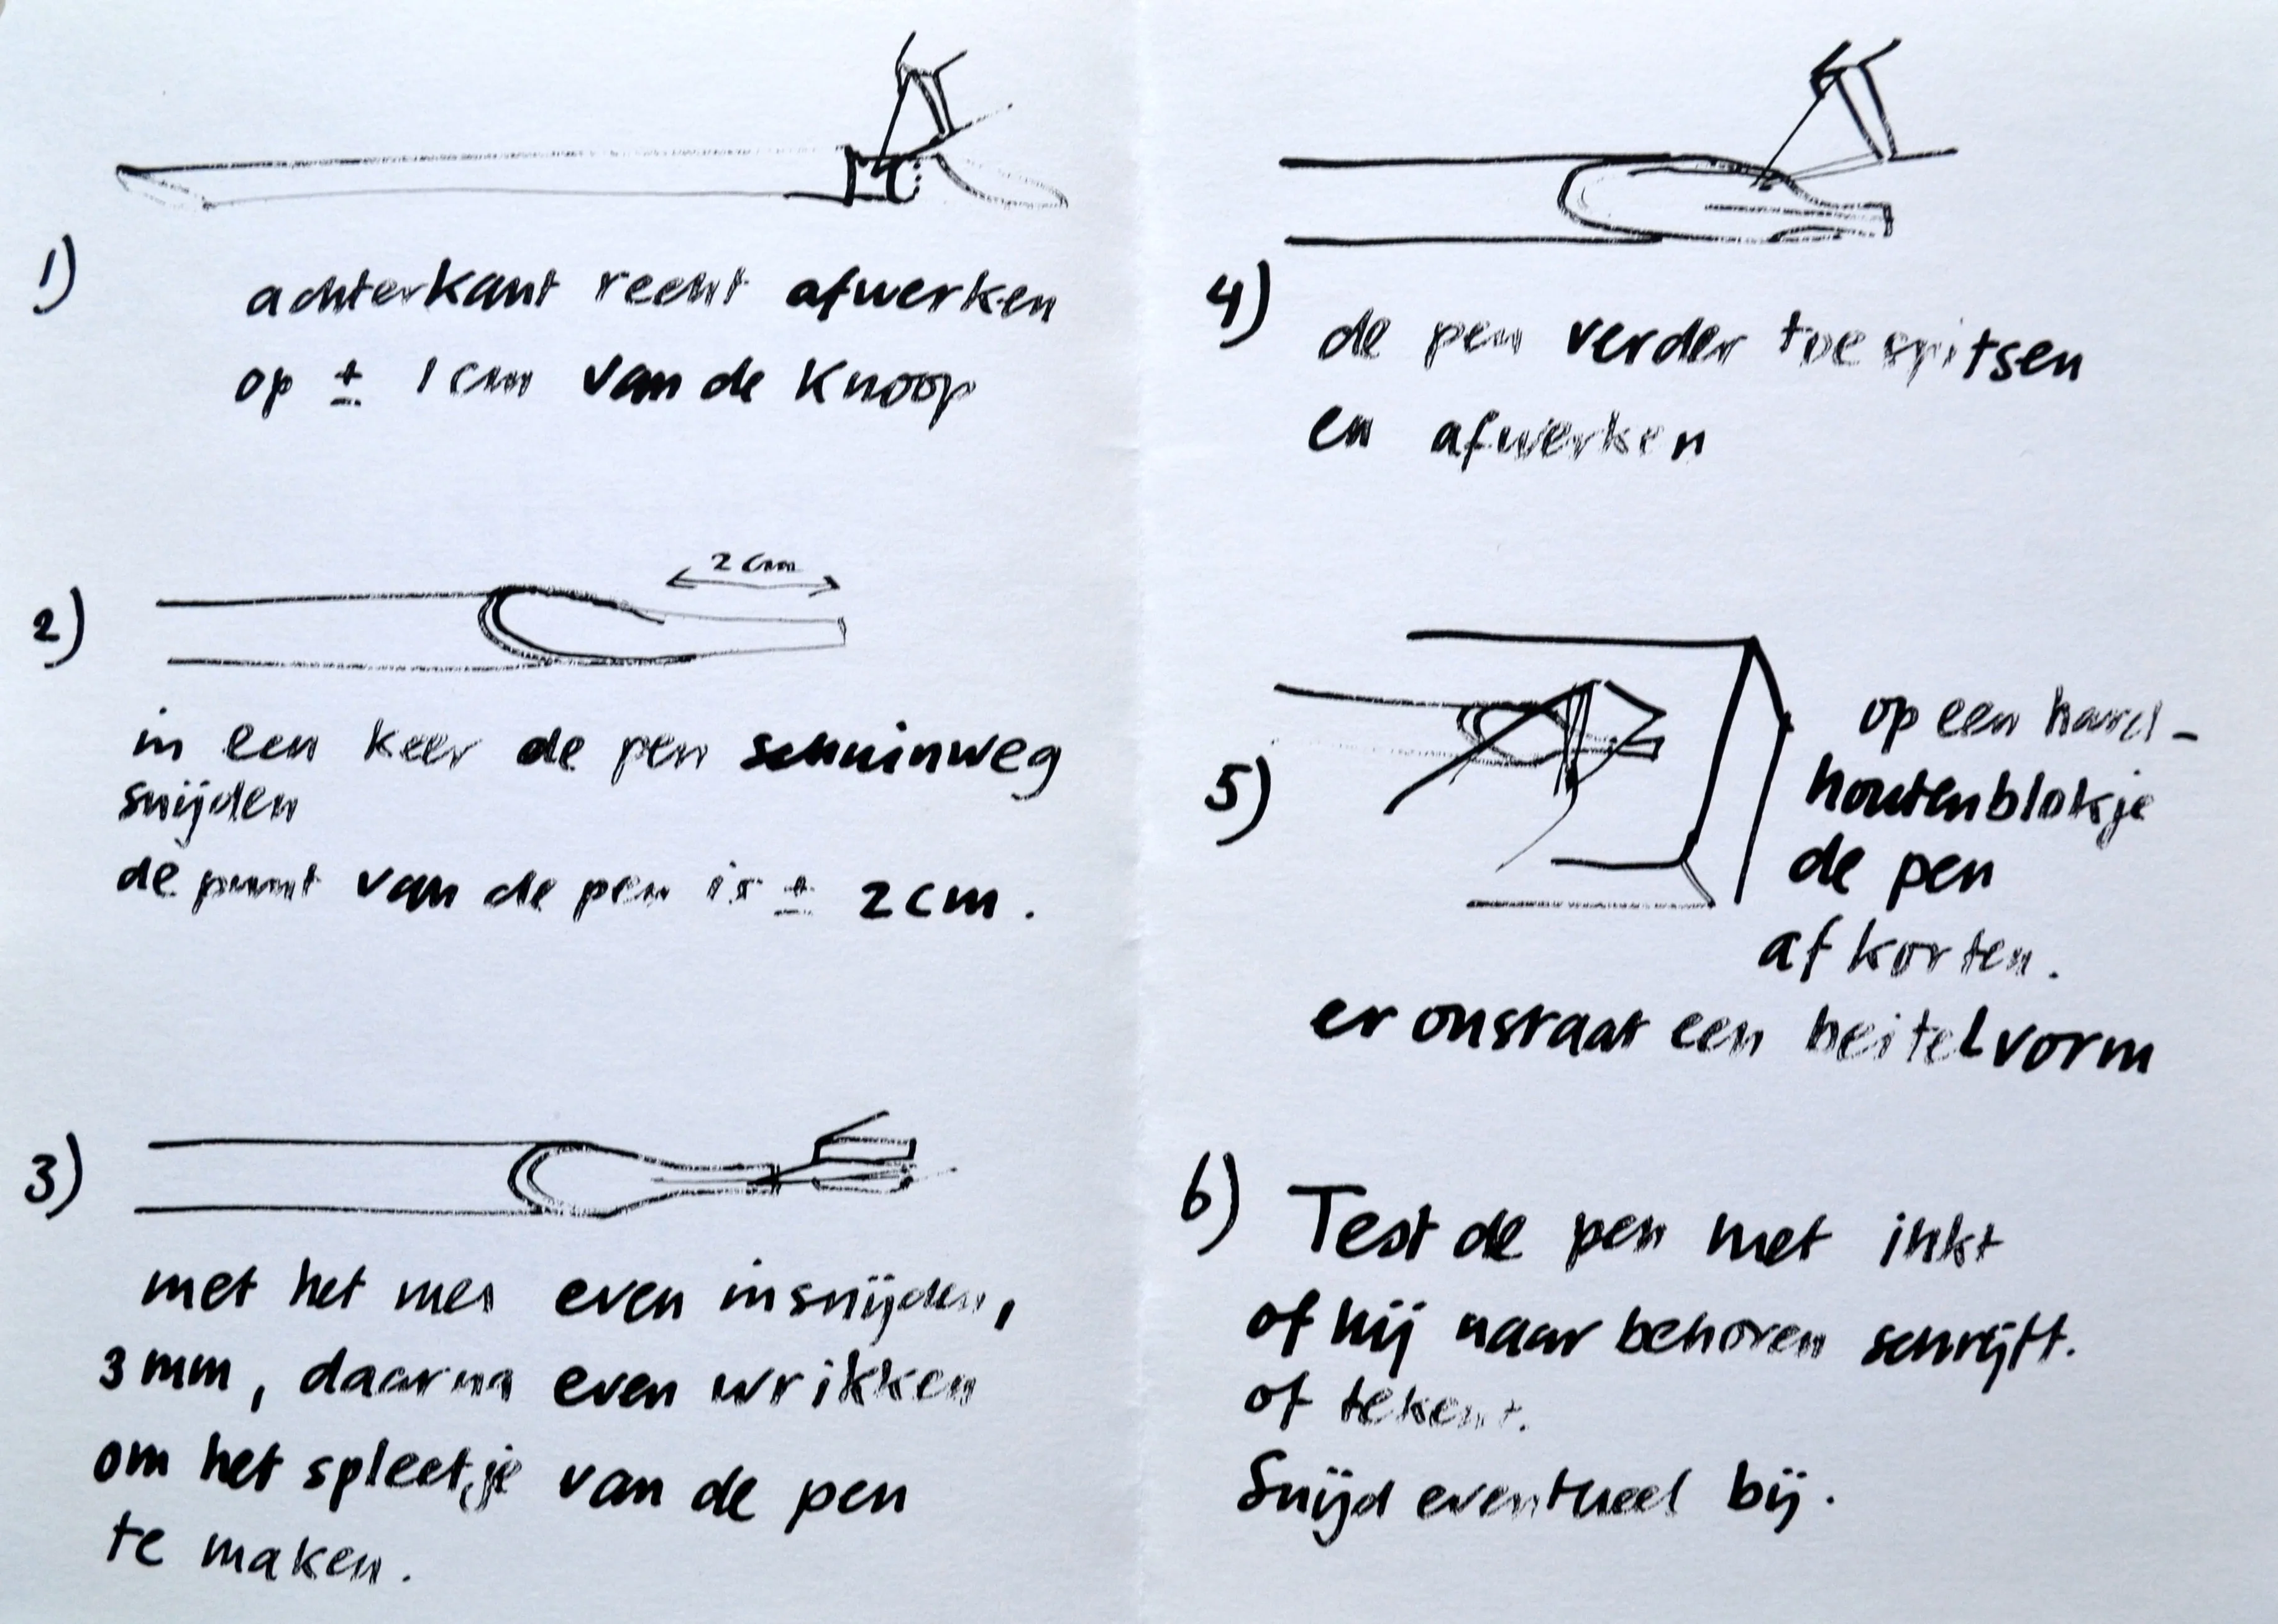 1)
achterkant recht afwerken
op ± 1 cm van de knoop
2 cm
2)
in een keer de pen schuinweg
snijden
de punt van de pen is ± 2 cm.
3)
met het mes even insnijden,
3 mm, daarna even wrikken
om het spleetje van de pen
te maken.
4)
de pen verder toespitsen
en afwerken
5)
op een hard-
houtenblokje
de pen
afkorten.
er onstaat een beitelvorm
6) Test de pen met inkt
of hij naar behoren schrijft.
of tekent.
Snijd eventueel bij.